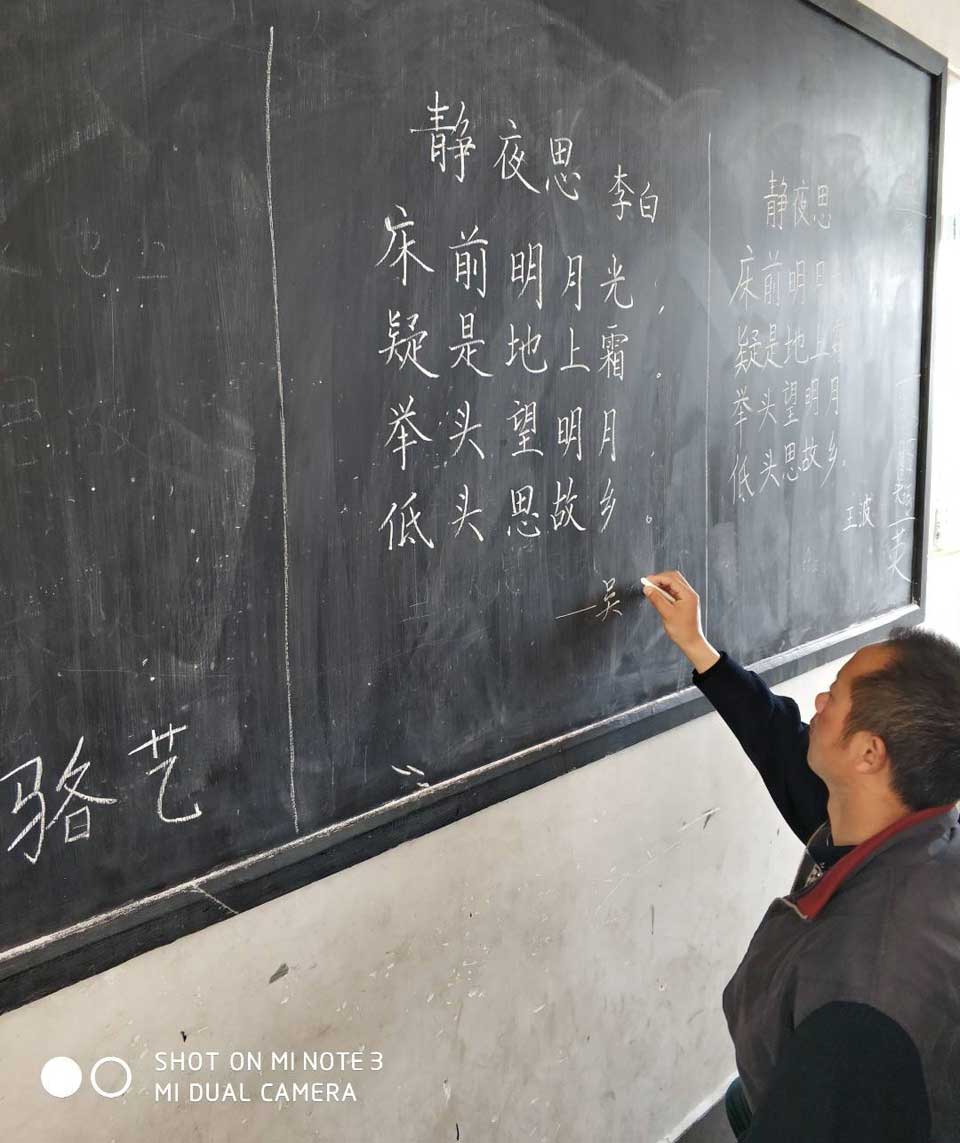 静夜思
李白
床前明月光，
疑是地上霜。
举头望明月，
低头思故乡。
—吴
静夜思
床前明月
疑是地上霜
举头望明月
低头思故乡.
王波
英
骆艺
SHOT ON MI NOTE 3
MI DUAL CAMERA